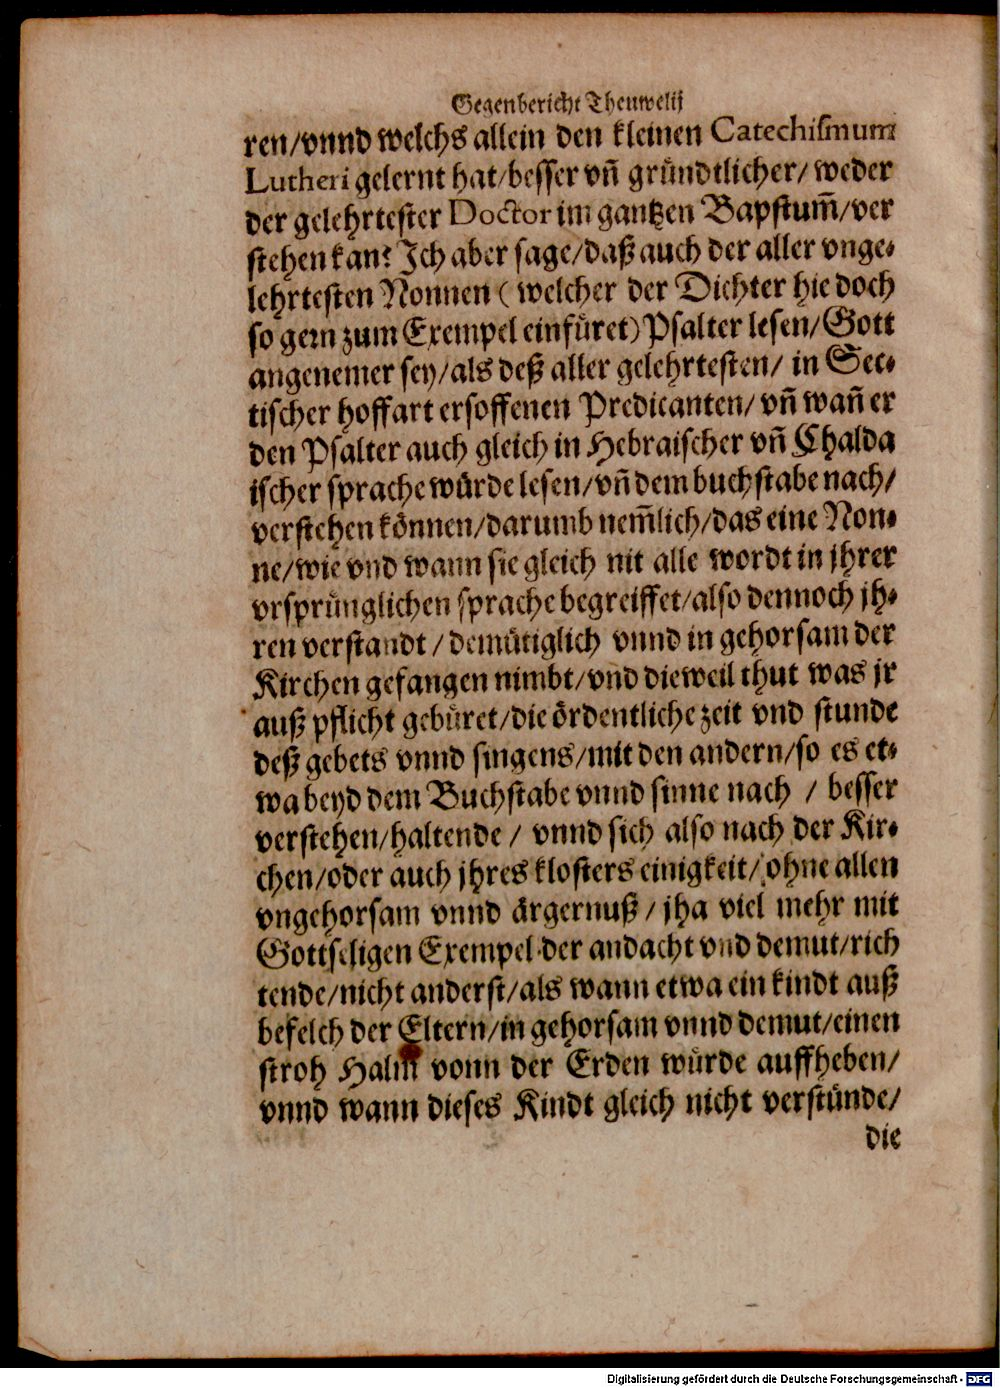 Gegenbericht Theuwelij
ren/vnnd welchs allein den kleinen Catechismum
Lutheri gelernt hat/besser vñ gründtlicher/weder
der gelehrtester Doctor im gantzen Bapstum̃/ver
stehen kan? Ich aber sage/daß auch der aller vnge-
lehrtesten Nonnen (welcher der Dichter hie doch
so gern zum Exempel einfüret) Psalter lesen/Gott
angenemer sey/als deß aller gelehrtesten/in Sec-
tischer hoffart ersoffenen Predicanten/vñ wañ er
den Psalter auch gleich in Hebraischer vñ Chalda
ischer sprache würde lesen/vñ dem buchstabe nach/
verstehen können/darumb nem̃lich/das eine Non-
ne/wie vnd wann sie gleich nit alle wordt in jhrer
vrsprünglichen sprache begreiffet/also dennoch jh-
ren verstandt/demütiglich vnnd in gehorsam der
Kirchen gefangen nimbt/vnd dieweil thut was jr
auß pflicht gebüret/die ördentliche zeit vnd stunde
deß gebets vnnd singens/mit den andern/so es et-
wa beyd dem Buchstabe vnnd sinne nach/besser
verstehen/haltende/vnnd sich also nach der Kir-
chen/oder auch jhres klosters einigkeit/ohne allen
vngehorsam vnnd ärgernuß/jha viel mehr mit
Gottseligen Exempel der andacht vnd demut/rich
tende/nicht anderst/als wann etwa ein kindt auß
befelch der Eltern/in gehorsam vnnd demut/einen
stroh Halm vonn der Erden würde auffheben/
vnnd wann dieses Kindt gleich nicht verstünde/
die
Digitalisierung gefördert durch die Deutsche Forschungsgemeinschaft - DFG